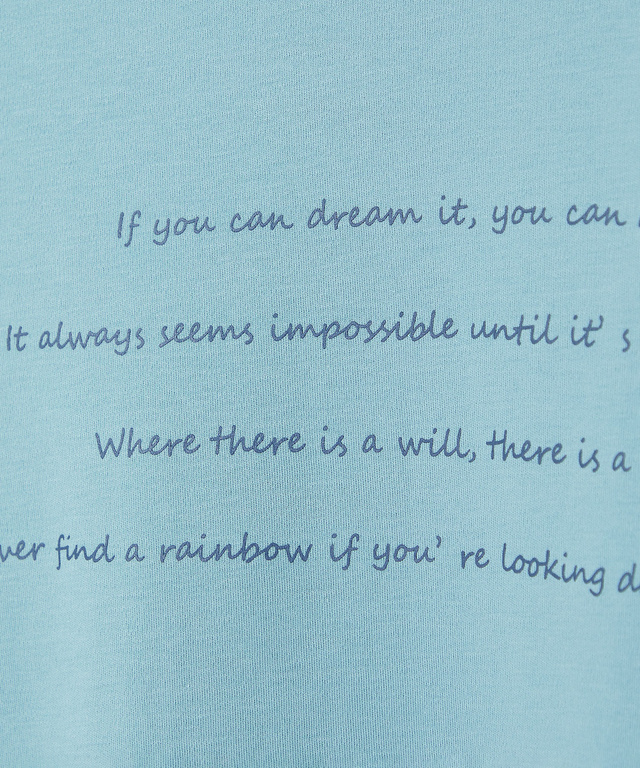 If you can dream it, you can
It always seems impossible until it's
Where there is a will, there is a
find a rainbow if you're looking